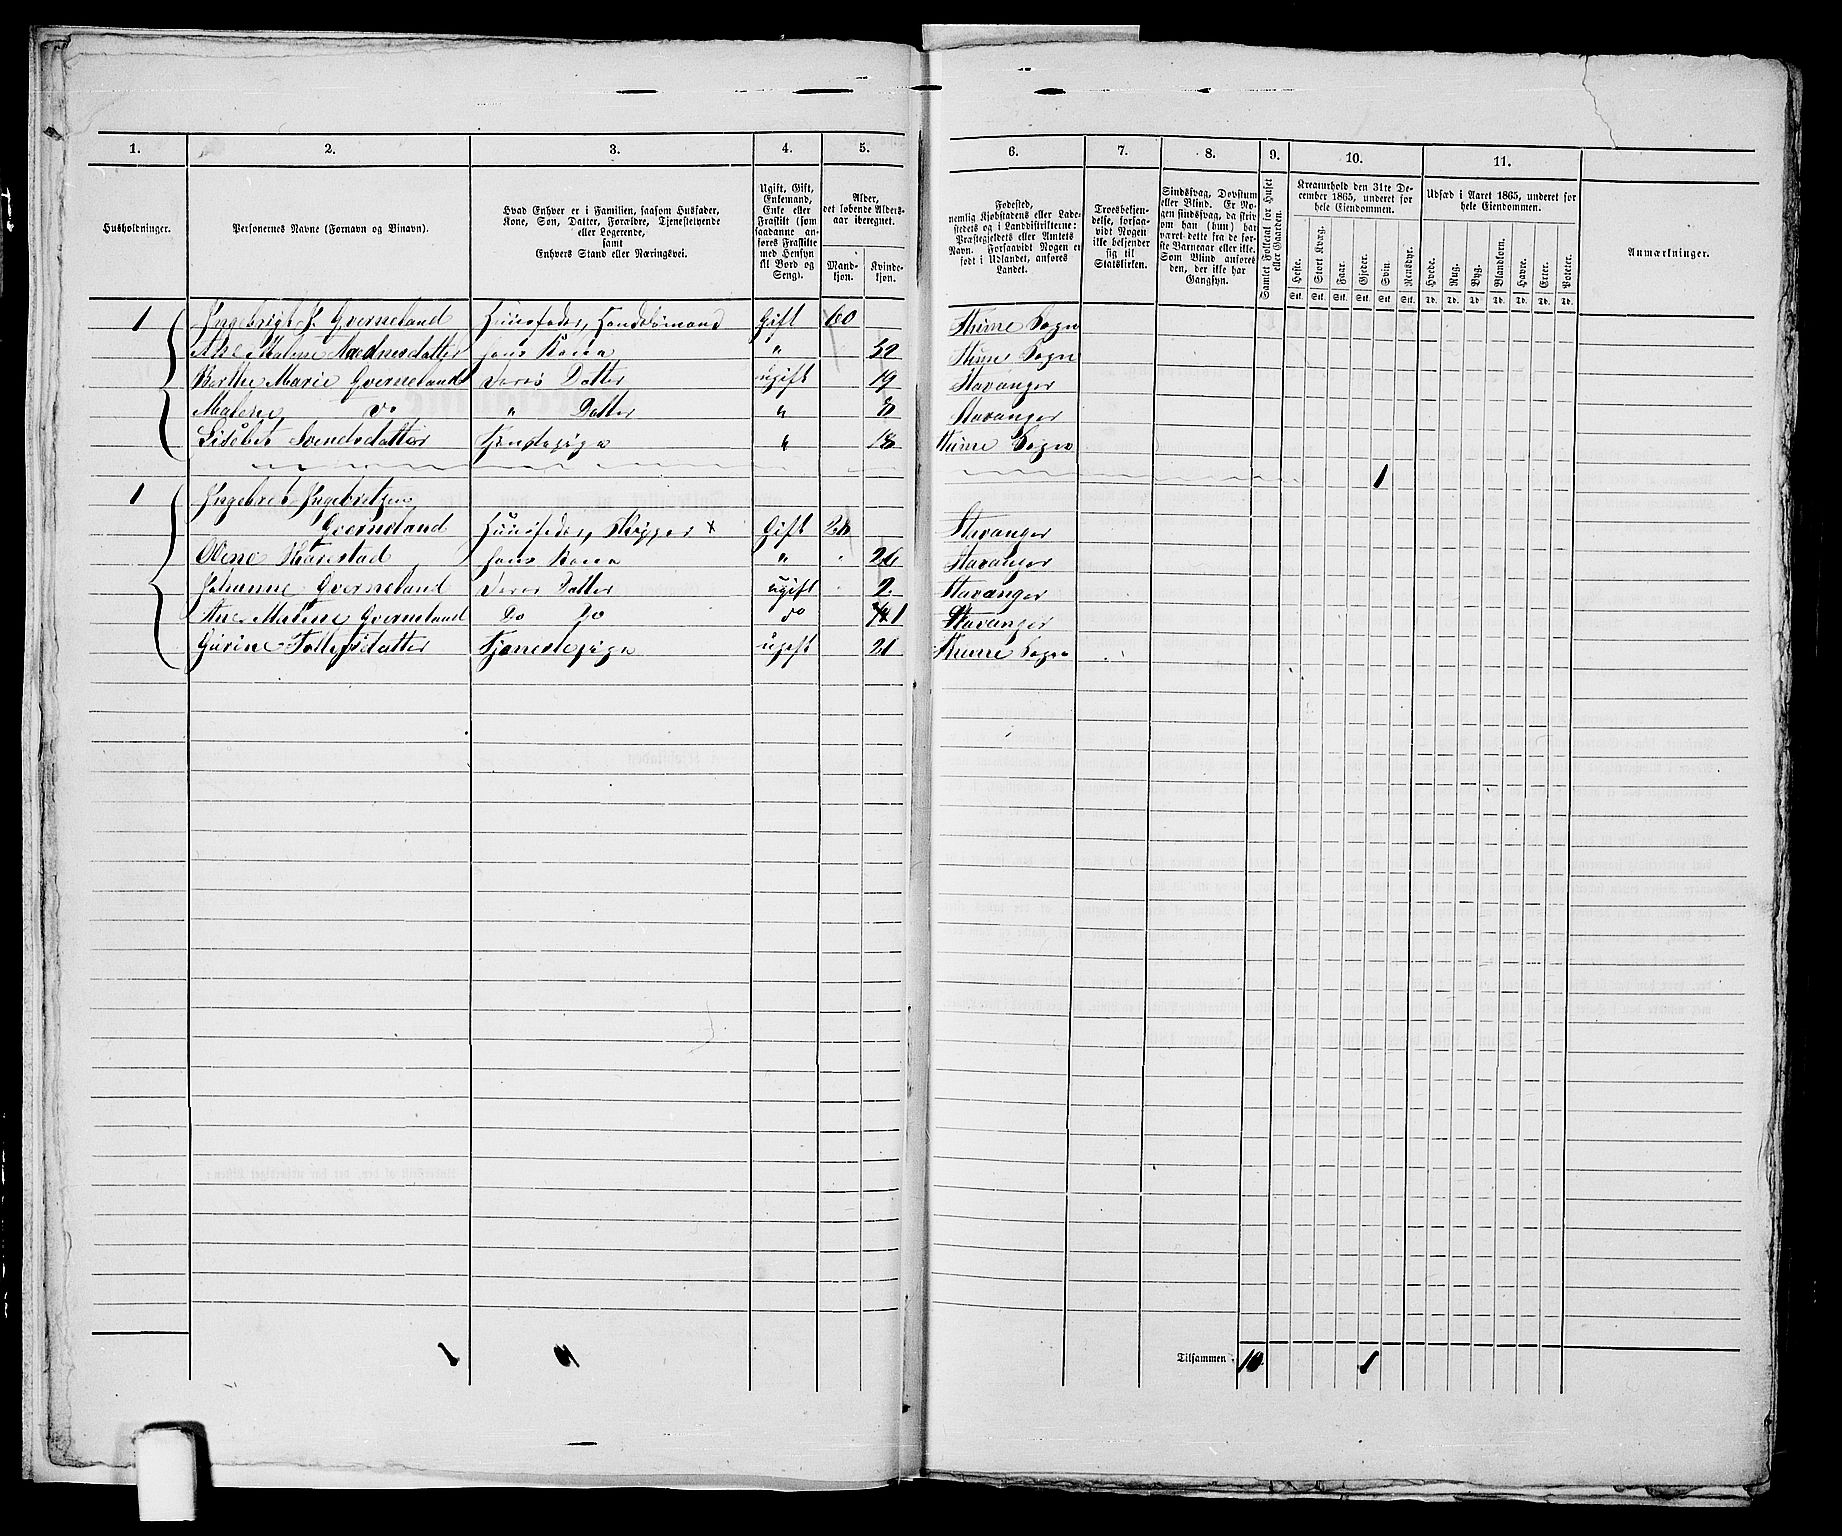 1. 2. 3. 4. 5. 6. 7. 8. 9. 10. 11.
Husholdninger.
Personernes Navne (Fornavn og Binavn).
Hvad Enhver er i Familien, saasom Husfader,
Kone, Søn, Datter, Forældre, Tjenestetyende
eller Logerende,
samt
Enhvers Stand eller Næringsvei.
Ugift, Gift,
Enkemand,
Enke eller
Fraskilt (som
saadanne an-
føres Fraskilte
med Hensyn
til Bord og
Seng).
Alder,
det løbende Alders-
aar iberegnet.
Mand-
kjøn.
Kvinde-
kjøn.
Fødested,
nemlig Kjøbstadens eller Lade-
stedets og i Landdistrikterne:
Præstegjeldets eller Annexets
Navn. Forsaavidt Nogen er
født i Udlandet, anføres
Landet.
Troesbekjen-
delse, forsaa-
vidt Nogen
ikke bekjender
sig til
Statskirken.
Sindssvag, Døvstum
eller Blind. Er No-
gen sindssvag, da skriv
om han (hun) har
været dette fra de før-
ste Barneaar eller ikke.
Som Blind anføres
den, der ikke har
Gangsyn.
Samlet Folketal for Huset
eller Gaarden.
Kreaturhold den 31te De-
cember 1865, underet for
hele Eiendommen.
Heste. Stort Kvæg. Faar. Gjeder. Svin. Rensdyr.
Stk. Stk. Stk. Stk. Stk. Stk.
Udsæd i Aaret 1865, underet for
hele Eiendommen.
Hvede. Rug. Byg. Blandkorn. Havre. Erter. Poteter.
Td. Td. Td. Td. Td. Td. Td.
Anmærkninger.
1 Ingebrigt I. Qverneland Huusfader, Handelsmand Gift 60 Thime Sogn
Ane Malene Aadnesdatter hans Kona " 52 Thime Sogn
Berthe Marie Qverneland Deres Datter ugift 19 Stavanger
Malene do " Datter " 8 Stavanger
Lisebet Svendsdatter Tjenstepige " 18 Thime Sogn
1
1 Ingebret Ingebretsen
Qverneland Huusfader, Skipper x Gift 28 Stavanger
Olene Harestad hans Kona " 26 Stavanger
Johanne Qverneland Deres Datter ugift 2 Stavanger
Ane Malene Qverneland Do Do do 1 Stavanger
Gurine Tollefsdatter Tjenestepige ugift 21 Thime Sogn
1
Tilsammen 10 1